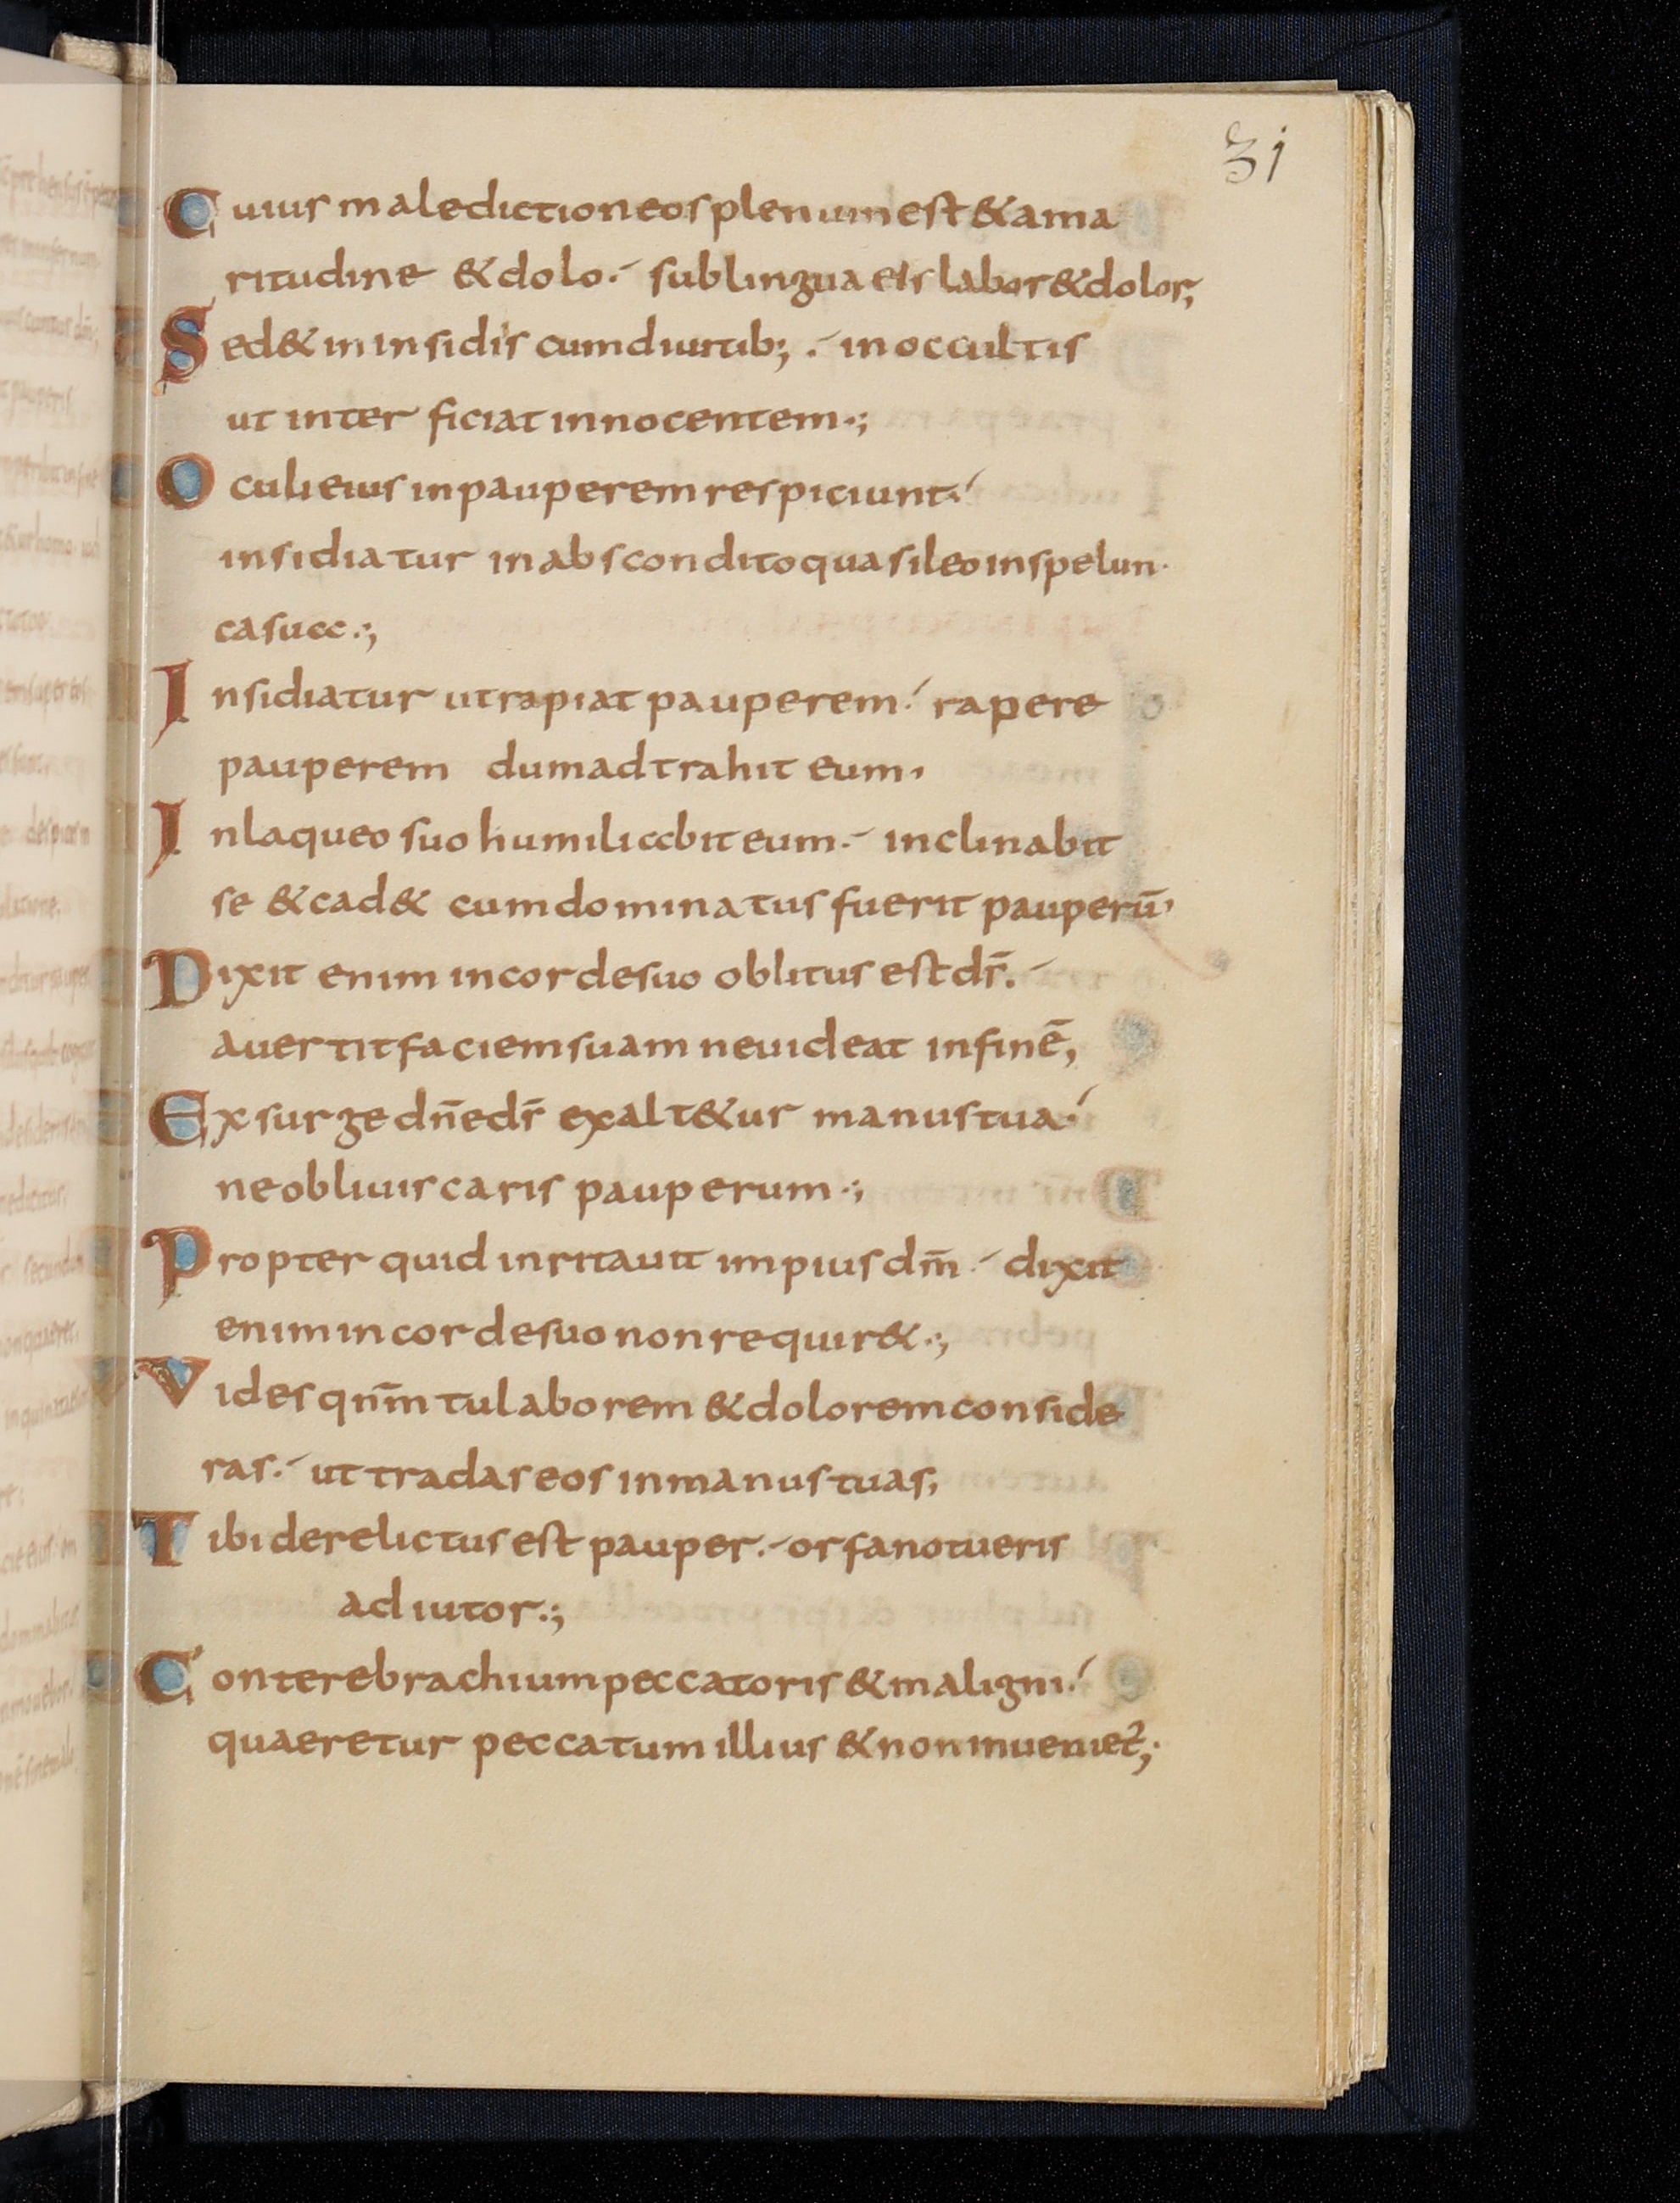 31
Cuius maledictione os plenum est & ama
ritudine & dolo. sub lingua eis labor & dolor;
Sed& in insidiis cum diuitib; . in occultis
ut interficiat innocentem.;
Oculi eius in pauperem respiciunt.
insidiatur in abscondito quasi leo in spelun
ca sua.;
Insidiatur ut rapiat pauperem. rapere
pauperem dum adtrahit eum.
In laqueo suo humiliabit eum. inclinabit
se & cad& cum dominatus fuerit pauperū
Dixit enim in corde suo oblitus est ds̄.
auertit faciem suam ne uideat in finē,
Exsurge dn̄e ds̄ exalt&ur manus tua.
ne obliuiscaris pauperum.;
Propter quid inritauit impius dm̄. dixit
enim in corde suo non requir&.;
Vides qnm̄ tu laborem & dolorem conside
ras. ut tradas eos in manus tuas,
Tibi derelictus est pauper. orfano tu eris
adiutor.;
Contere brachium peccatoris & maligni.
quaeretur peccatum illius & non inueniet᷑;